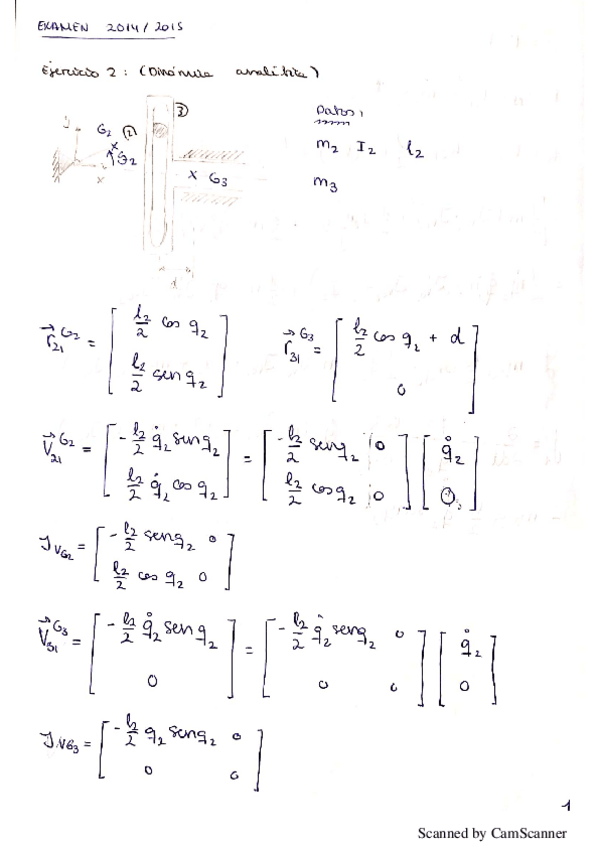 EXAMEN 2014/2015
Ejercicio 2: (Dinámica analítica)
③ Datos:
G₂ ② m₂ I₂ l₂
q₂ x G₃ m₃
x
d
r⃗₂₁^G₂ = [ l₂/2 cos q₂ ; l₂/2 sen q₂ ] r⃗₃₁^G₃ = [ l₂/2 cos q₂ + d ; 0 ]
V⃗₂₁^G₂ = [ -l₂/2 q̇₂ sen q₂ ; l₂/2 q̇₂ cos q₂ ] = [ -l₂/2 sen q₂ 0 ; l₂/2 cos q₂ 0 ] [ q̇₂ ; 0 ]
J_VG₂ = [ -l₂/2 sen q₂ 0 ; l₂/2 cos q₂ 0 ]
V⃗₃₁^G₃ = [ -l₂/2 q̇₂ sen q₂ ; 0 ] = [ -l₂/2 q̇₂ sen q₂ 0 ; 0 0 ] [ q̇₂ ; 0 ]
J_VG₃ = [ -l₂/2 q₂ sen q₂ 0 ; 0 0 ]
1
Scanned by CamScanner